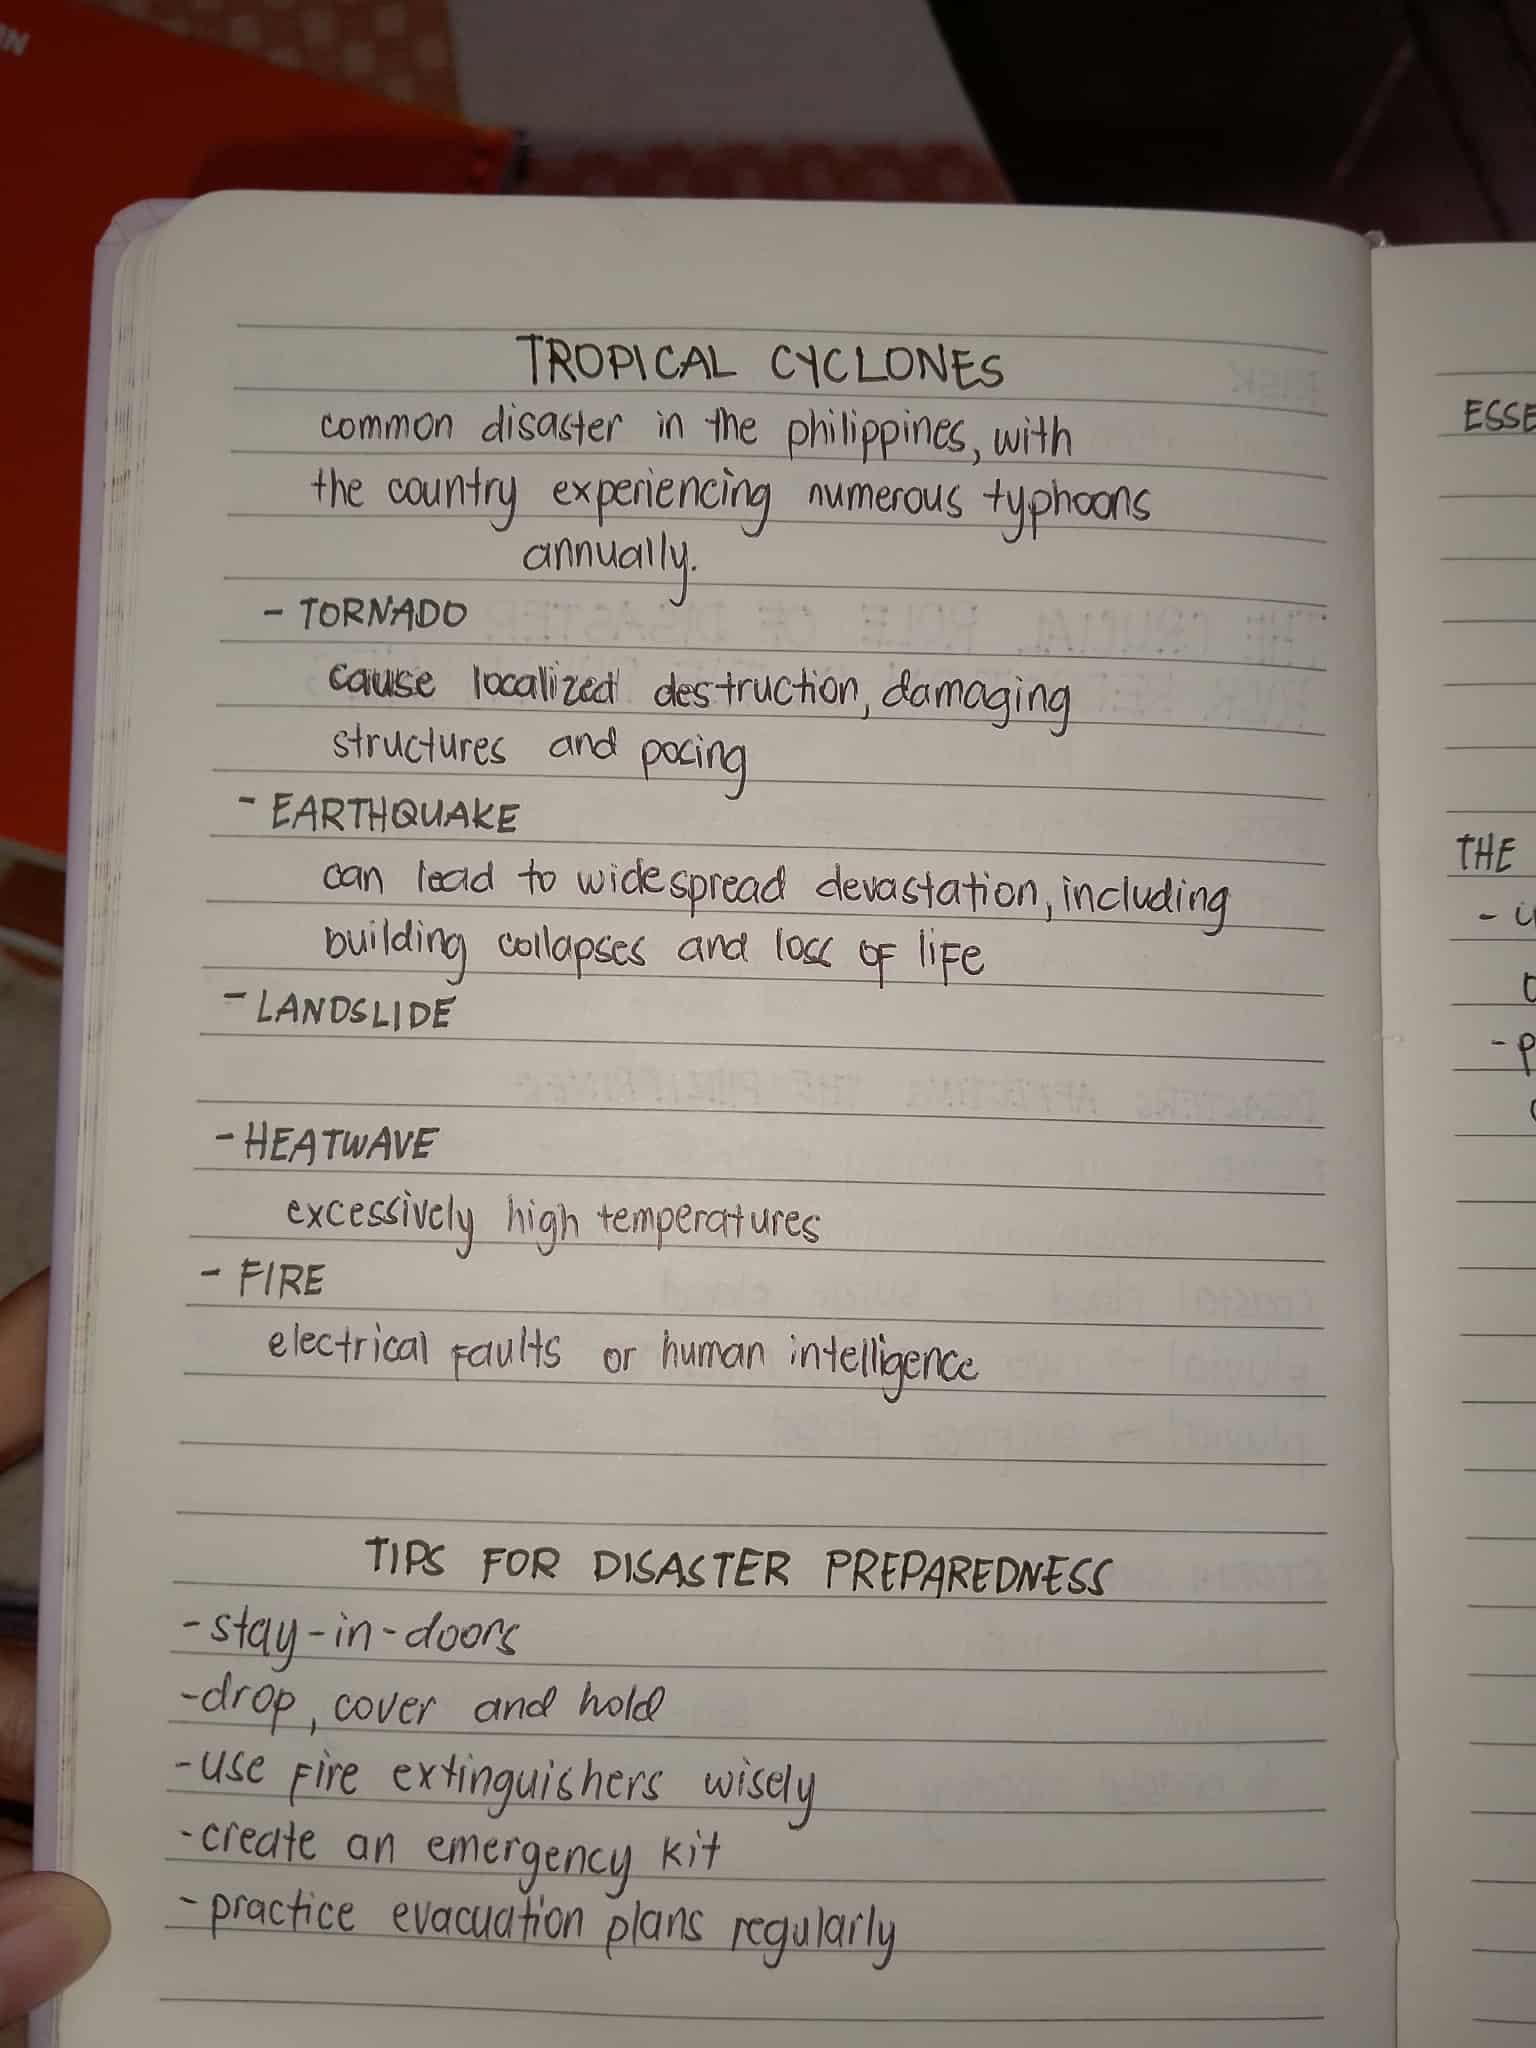 TROPICAL CYCLONES
common disaster in the philippines, with
the country experiencing numerous typhoons
annually.
- TORNADO
cause localized destruction, damaging
structures and pocing
- EARTHQUAKE
can lead to widespread devastation, including
building collapses and loss of life
- LANDSLIDE
- HEATWAVE
excessively high temperatures
- FIRE
electrical faults or human intelligence
TIPS FOR DISASTER PREPAREDNESS
- stay-in-doors
- drop, cover and hold
- use fire extinguishers wisely
- create an emergency kit
- practice evacuation plans regularly
ESSE
THE